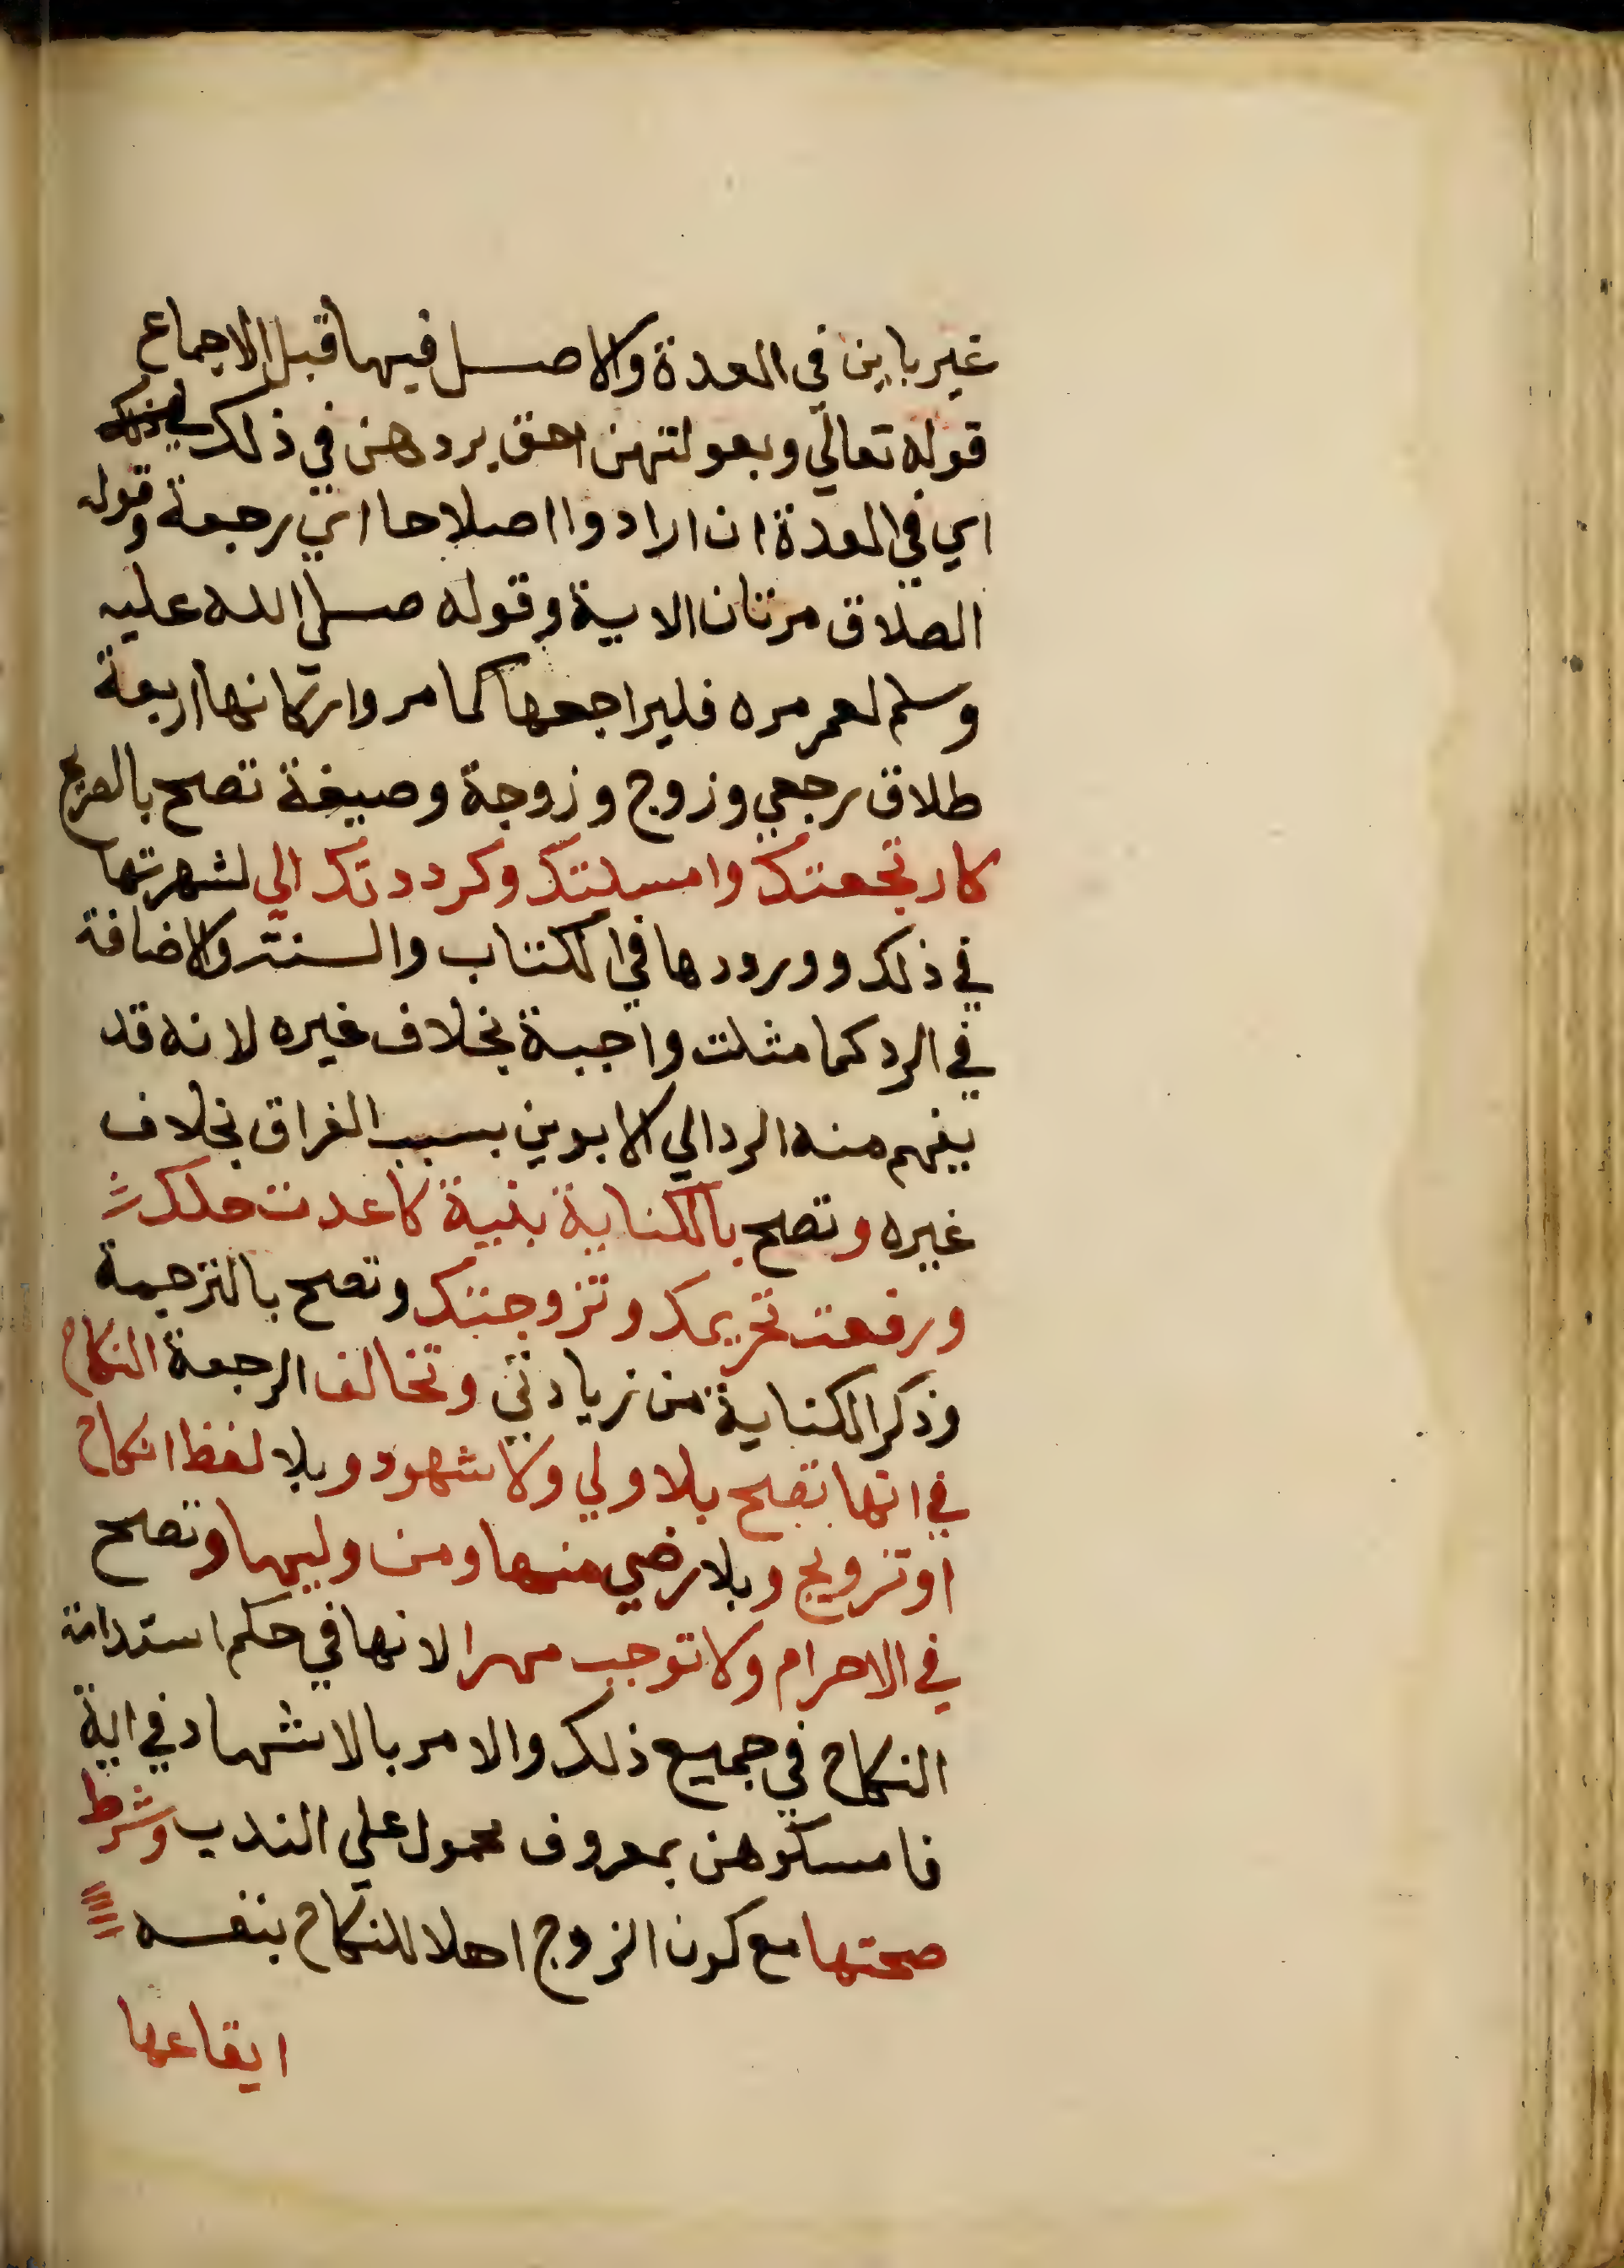 غير باين في العدة والاصل فيها قبل الاجماع
قوله تعالي وبعولتهن احق بردهن في ذلك
اي في العدة ان ارادوا اصلاحا اي رجعة وقوله
الطلاق مرتان الاية وقوله صلي الله عليه
وسلم لعمر مره فليراجعها كما مر واركانها اربعة
طلاق رجعي وزوج وزوجة وصيغة تصح بالصريح
كارتجعتك وامسكتك وكرددتك الي لشهرتها
في ذلك وورودها في الكتاب والسنة والاضافة
في الرد كما مثلت واجبة بخلاف غيره لانه قد
يفهم منه الرد الي الابوين بسبب الفراق بخلاف
غيره وتصح بالكناية بنية كاعدت حلك
ورفعت تحريمك وتزوجتك وتصح بالترجمة
وذكر الكناية من زيادتي وتخالف الرجعة النكاح
في انها تصح بلا ولي ولا شهود وبلا لفظ انكاح
او تزويج وبلا رضي منها ومن وليها وتصح
في الاحرام ولا توجب مهرا لانها في حكم استدامة
النكاح في جميع ذلك والامر بالاشهاد في اية
فامسكوهن بمعروف محمول علي الندب وشرط
صحتها مع كون الزوج اهلا للنكاح بنفسه
ايقاعها